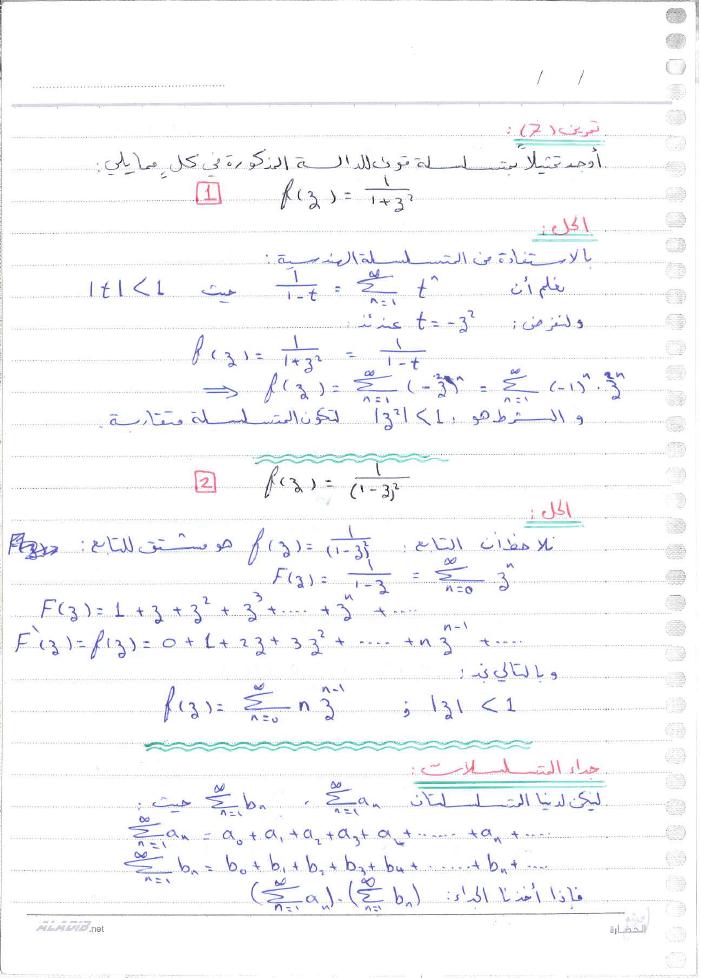 / /
تمرين (7):
أوجد تمثيلاً بمتسلسلة قوى للدالة المذكورة في كلٍ مما يلي:
1 f(z) = 1/(1+z²)
الحل:
بالاستفادة من المتسلسلة الهندسية:
نعلم أن 1/(1-t) = ∑_{n=1}^{∞} tⁿ حيث |t| < 1
ولنفرض: t = -z² عندئذ:
f(z) = 1/(1+z²) = 1/(1-t)
⟹ f(z) = ∑_{n=1}^{∞} (-z²)ⁿ = ∑_{n=1}^{∞} (-1)ⁿ · z²ⁿ
والشرط هو: |z²| < 1 لتكون المتسلسلة متقاربة.
2 f(z) = 1/(1-z)²
الحل:
نلاحظ أن التابع: f(z) = 1/(1-z)² هو مشتق للتابع:
F(z) = 1/(1-z) = ∑_{n=0}^{∞} zⁿ
F(z) = 1 + z + z² + z³ + .... + zⁿ + ....
F`(z) = f(z) = 0 + 1 + 2z + 3z² + ..... + n zⁿ⁻¹ + ....
وبالتالي نجد:
f(z) = ∑_{n=0}^{∞} n zⁿ⁻¹ ; |z| < 1
جداء المتسلسلات:
ليكن لدينا المتسلسلتان ∑_{n=1}^{∞} aₙ ، ∑_{n=1}^{∞} bₙ حيث:
∑_{n=1}^{∞} aₙ = a₀ + a₁ + a₂ + a₃ + a₄ + ...... + aₙ + ....
∑_{n=1}^{∞} bₙ = b₀ + b₁ + b₂ + b₃ + b₄ + ...... + bₙ + ....
فإذا أخذنا الجداء: (∑_{n=1}^{∞} aₙ) · (∑_{n=1}^{∞} bₙ)
ALADIB.net
الحضارة